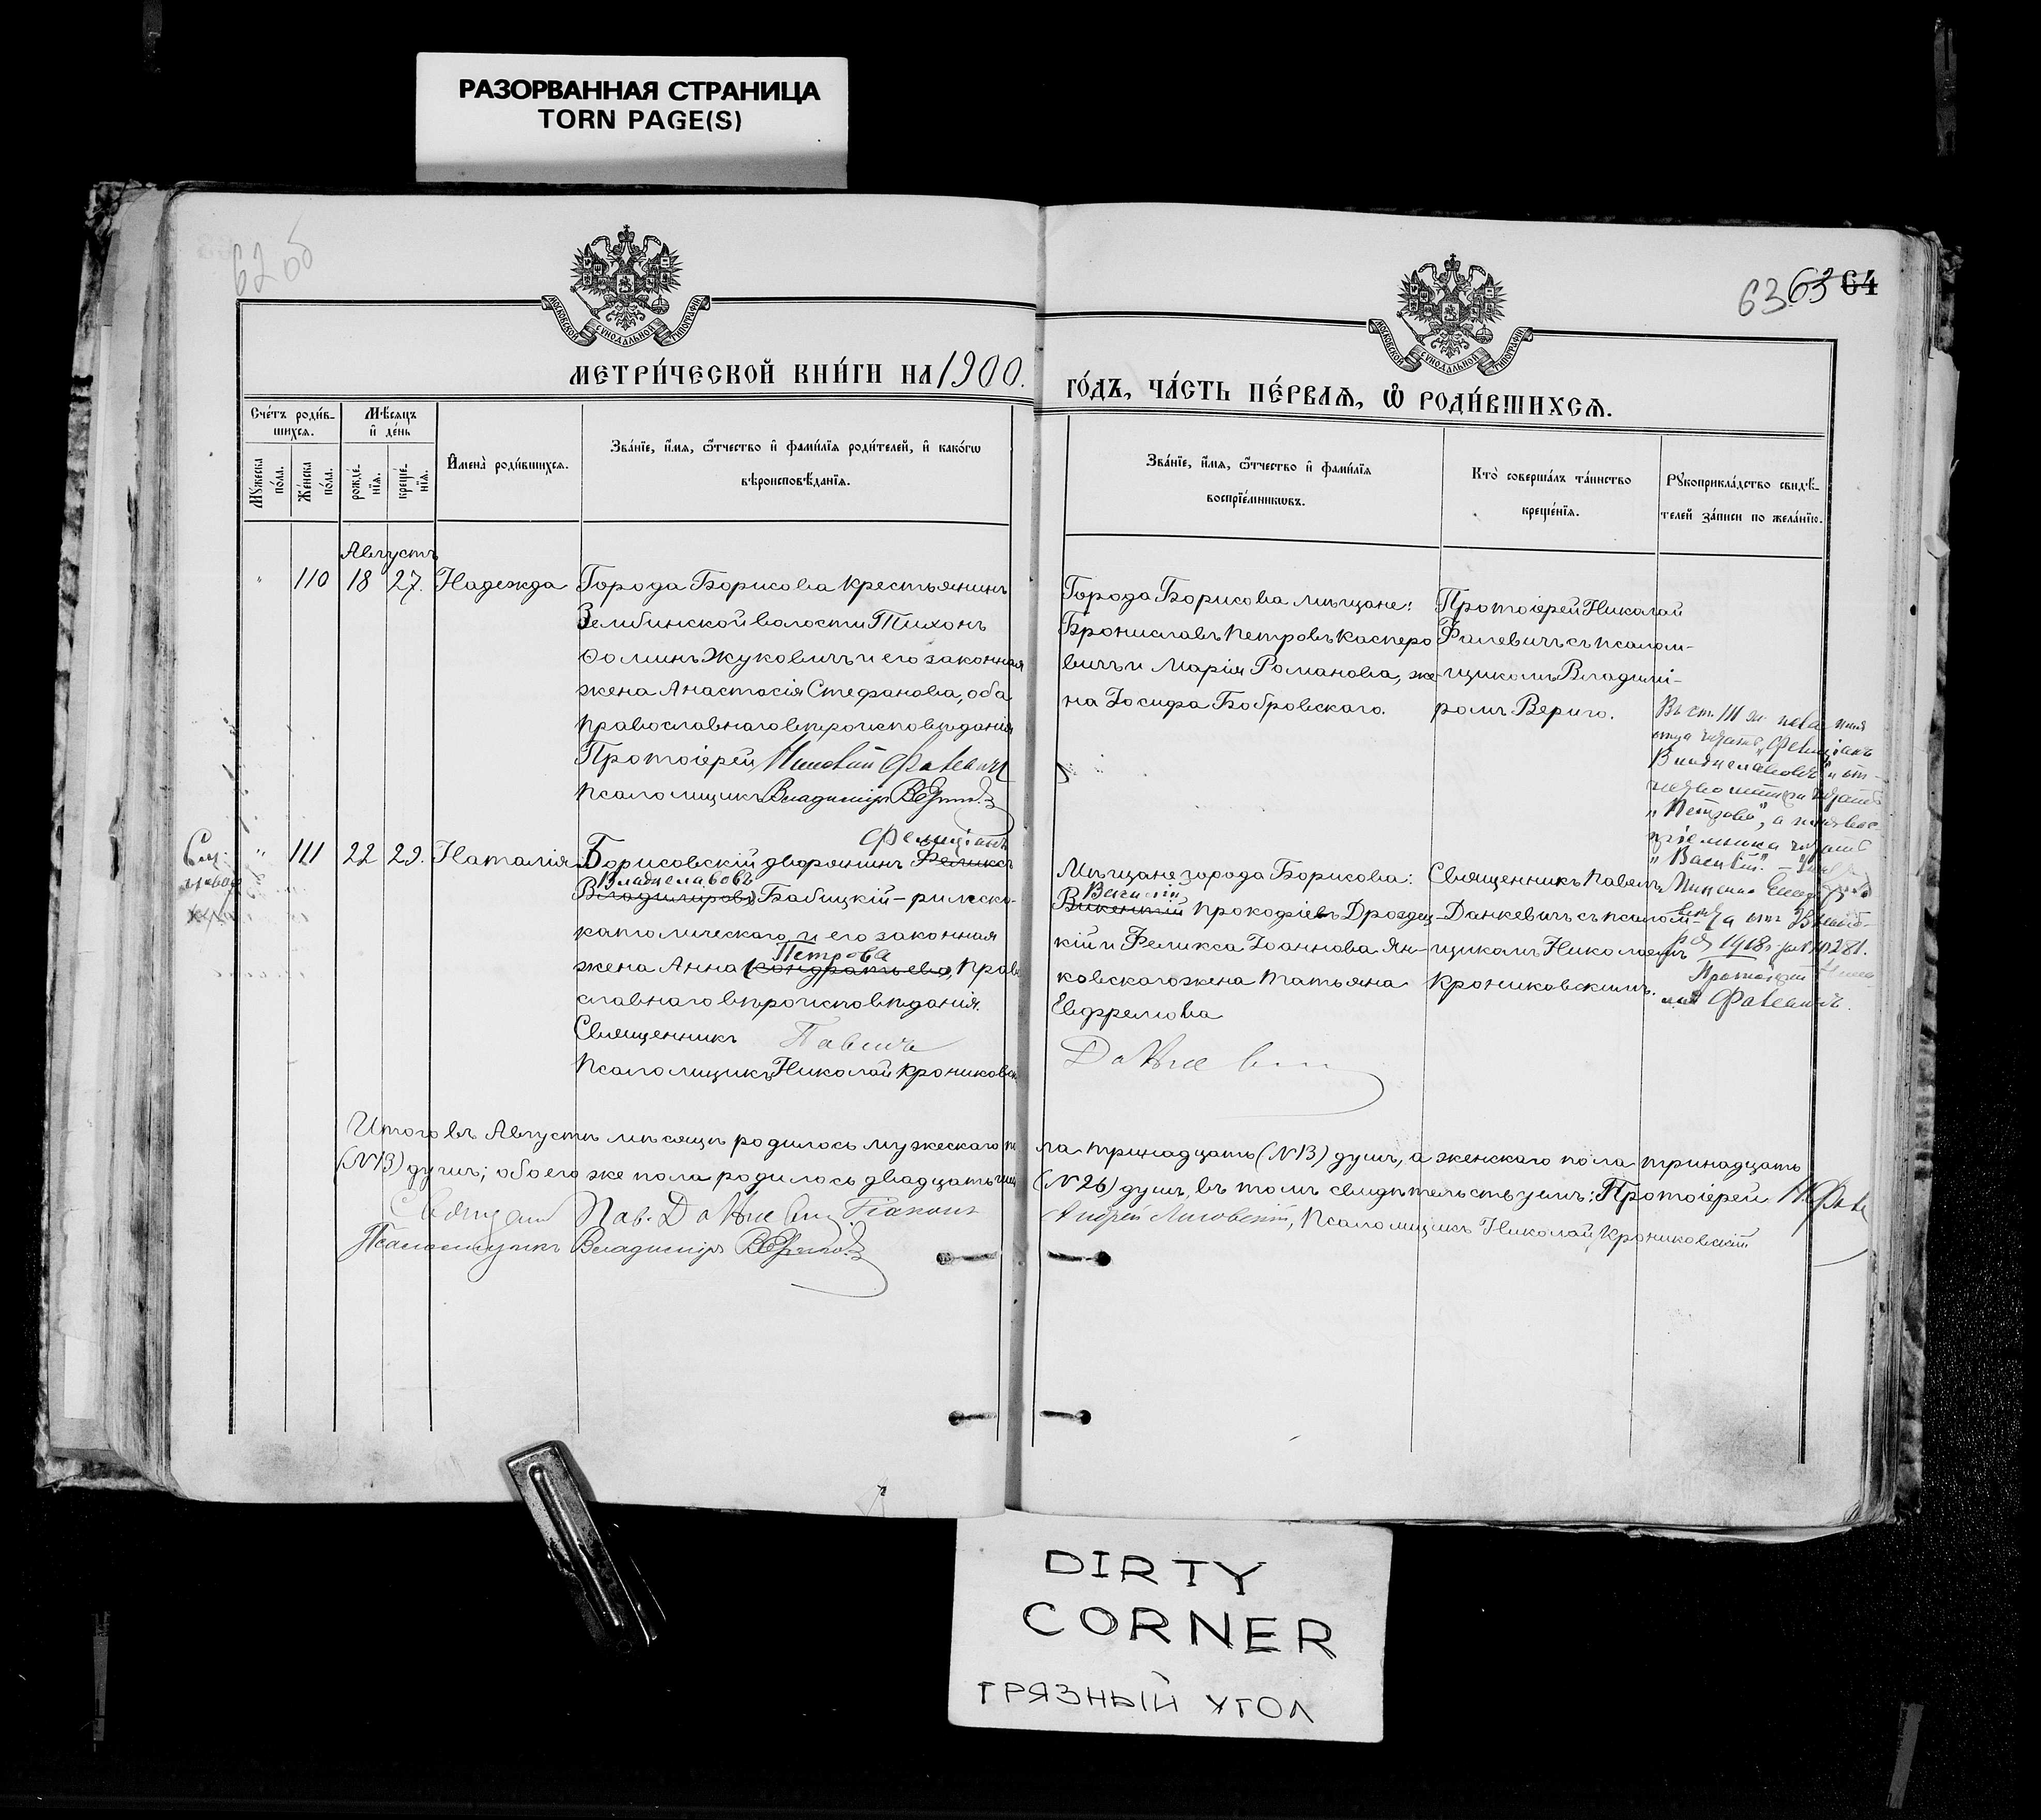 РАЗОРВАННАЯ СТРАНИЦА
TORN PAGE(S)
62 об
63 63 64
МОСКОВСКОЙ СУНОДАЛЬНОЙ ТИПОГРАФІИ
МОСКОВСКОЙ СУНОДАЛЬНОЙ ТИПОГРАФІИ
МЕТРИ́ЧЕСКОЙ КНИ́ГИ НА 1900.
ГО́ДЪ, ЧА́СТЬ ПЕ́РВАѦ, Ѡ РОДИ́ВШИХСѦ.
Сче́тъ роди́в-
шихся.
Мѣ́сяцъ
и де́нь
Мꙋ́жеска по́ла.
Же́нска по́ла.
рожде́нїя.
креще́нїя.
Имена̀ роди́вшихся.
Зва́нїе, и́мя, ѻ́тчество и фами́лїя роди́телей, и како́гѡ
вѣроисповѣ́данїя.
Зва́нїе, и́мя, ѻ́тчество и фами́лїя
воспрїе́мникѡвъ.
Кто̀ соверша́лъ та́инство
креще́нїя.
Рꙋкоприкла́дство свидѣ́-
телей за́писи по жела́нїю.
Августъ
" 110 18 27. Надежда
Города Борисова крестьянинъ
Зембинской волости Тихонъ
Ѳоминъ Жуковичъ и его законная
жена Анастасія Стефанова, оба
православнаго вѣроисповѣданія
Протоіерей Николай Фалевичъ
Псаломщикъ Владиміръ Вериго
Города Борисова мѣщане:
Брониславъ Петровъ Касперо
вичъ и Марія Романова, же-
на Іосифа Бобровскаго.
Протоіерей Николай
Фалевичъ съ псалом-
щикомъ Владимі-
ромъ Вериго.
" 111 22 29. Наталія
Фелиціанъ
Борисовскій дворянинъ Феликсъ
Владиславовъ
Владимировъ Бабицкій – римско-
католическаго и его законная
Петрова
жена Анна Кондратьева, право
славнаго вѣроисповѣданія.
Священникъ Павелъ
Псаломщикъ Николай Крониковскі
Мѣщане города Борисова:
Василій
Викентій Прокофіевъ Дроздец-
кій и Феликса Іоаннова Ян-
ковскаго жена Татьяна
Евфремова
Данкевичъ
Священникъ Павелъ
Данкевичъ съ псалом-
щикомъ Николаемъ
Крониковскимъ.
Въ ст. 111 имя
отца читать „Фелиціанъ
Владиславовъ" и от-
читать
„Петрова", а имя вос-
пріемника читать
„Василій".
1918 г. за № 281.
Протоіерей
Фалевичъ.
Итого въ Августѣ мѣсяцѣ родилось мужескаго по
ла тринадцать (№ 13) душъ, а женскаго пола тринадцать
(№ 13) душъ; обоего же пола родилось двадцать шес
(№ 26) душъ, въ томъ свидѣтельствуемъ: Протоіерей Н. Фале
Священ Пав. Данкевичъ Діаконъ
Андрей Лисовскій, Псаломщикъ Николай Крониковскій
Псаломщикъ Владиміръ Вериго
DIRTY
CORNER
ГРЯЗНЫЙ УГОЛ